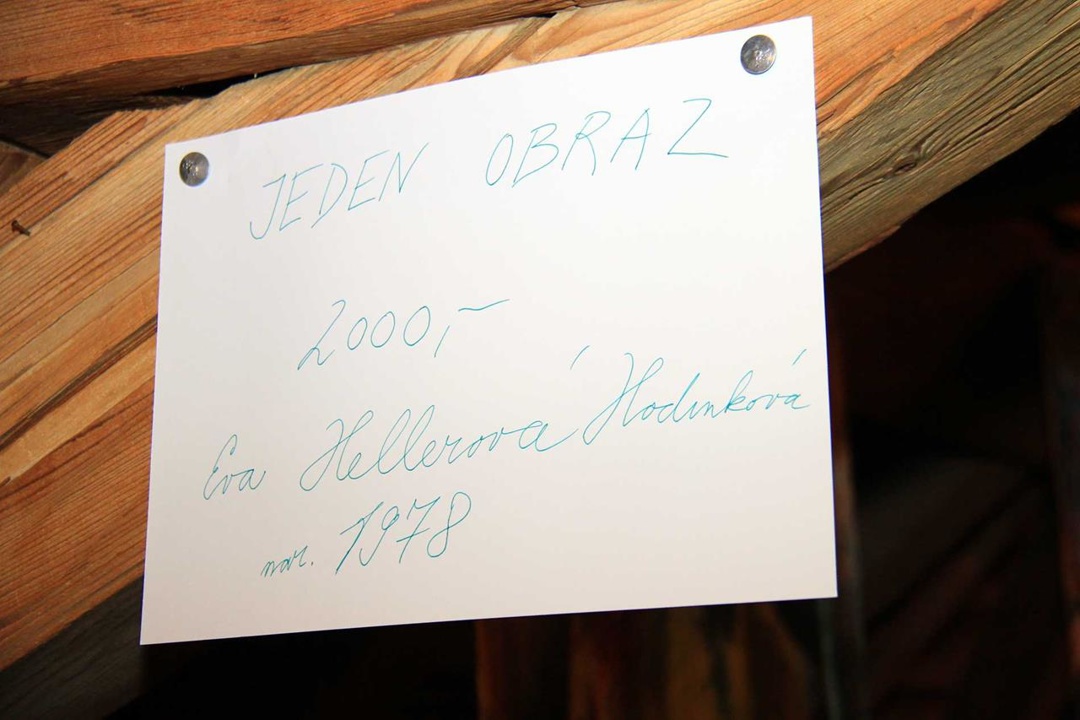 JEDEN OBRAZ
2000,-
Eva Hellerová Hodinková
nar. 1978